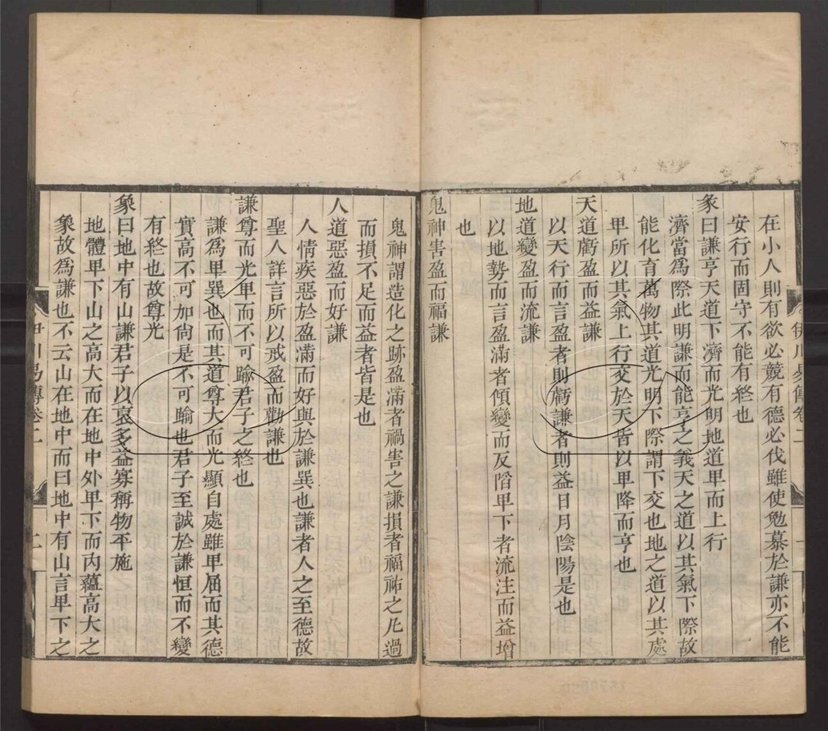 在小人則有欲必競有德必伐雖使勉慕於謙亦不能
安行而固守不能有終也
彖曰謙亨天道下濟而光明地道卑而上行
濟當爲際此明謙而能亨之義天之道以其氣下際故
能化育萬物其道光明下際謂下交也地之道以其處
卑所以其氣上行交於天皆以卑降而亨也
天道虧盈而益謙
以天行而言盈者則虧謙者則益日月陰陽是也
地道變盈而流謙
以地勢而言盈滿者傾變而反陷卑下者流注而益增
也
鬼神害盈而福謙
鬼神謂造化之跡盈滿者禍害之謙損者福祐之凡過
而損不足而益者皆是也
人道惡盈而好謙
人情疾惡於盈滿而好與於謙巽也謙者人之至德故
聖人詳言所以戒盈而勸謙也
謙尊而光卑而不可踰君子之終也
謙爲卑巽也而其道尊大而光顯自處雖卑屈而其德
實高不可加尚是不可踰也君子至誠於謙恒而不變
有終也故尊光
象曰地中有山謙君子以裒多益寡稱物平施
地體卑下山之高大而在地中外卑下而內蘊高大之
象故爲謙也不云山在地中而曰地中有山言卑下之
伊川易傳卷二
二